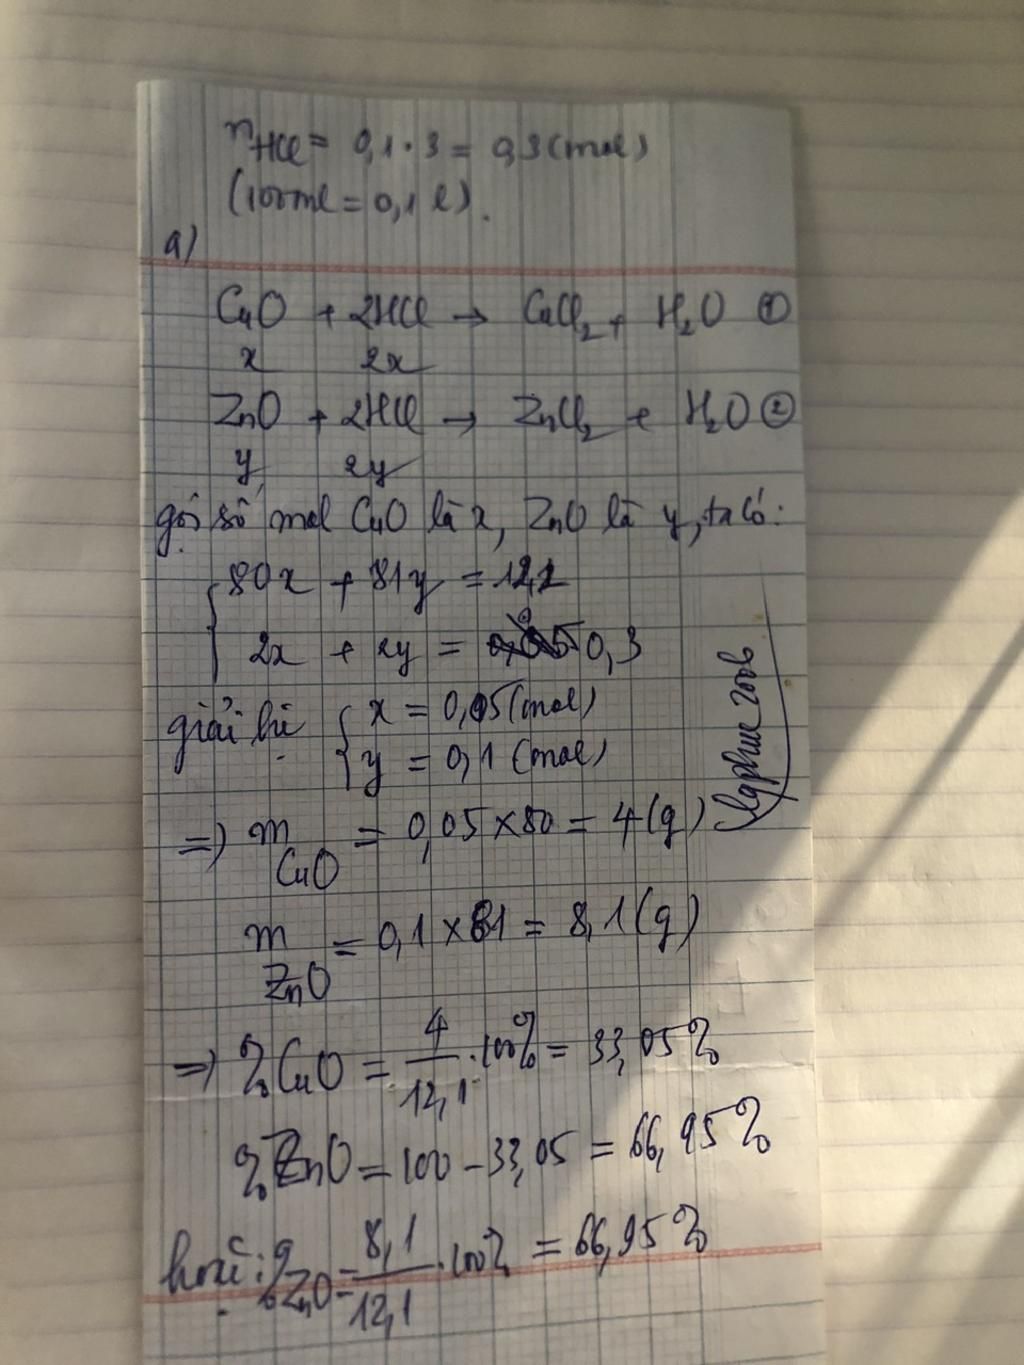 nHCl = 0,1 . 3 = 0,3 (mol)
(100ml = 0,1 l).
a)
CuO + 2HCl → CuCl2 + H2O ①
x 2x
ZnO + 2HCl → ZnCl2 + H2O ②
y 2y
gọi số mol CuO là x, ZnO là y, ta có:
80x + 81y = 12,1
2x + 2y = 0,3
giải hệ x = 0,05 (mol)
y = 0,1 (mol)
=> mCuO = 0,05 x 80 = 4 (g)
mZnO = 0,1 x 81 = 8,1 (g)
=> %CuO = 4/12,1 . 100% = 33,05%
%ZnO = 100 - 33,05 = 66,95%
hoặc: %ZnO = 8,1/12,1 . 100% = 66,95%